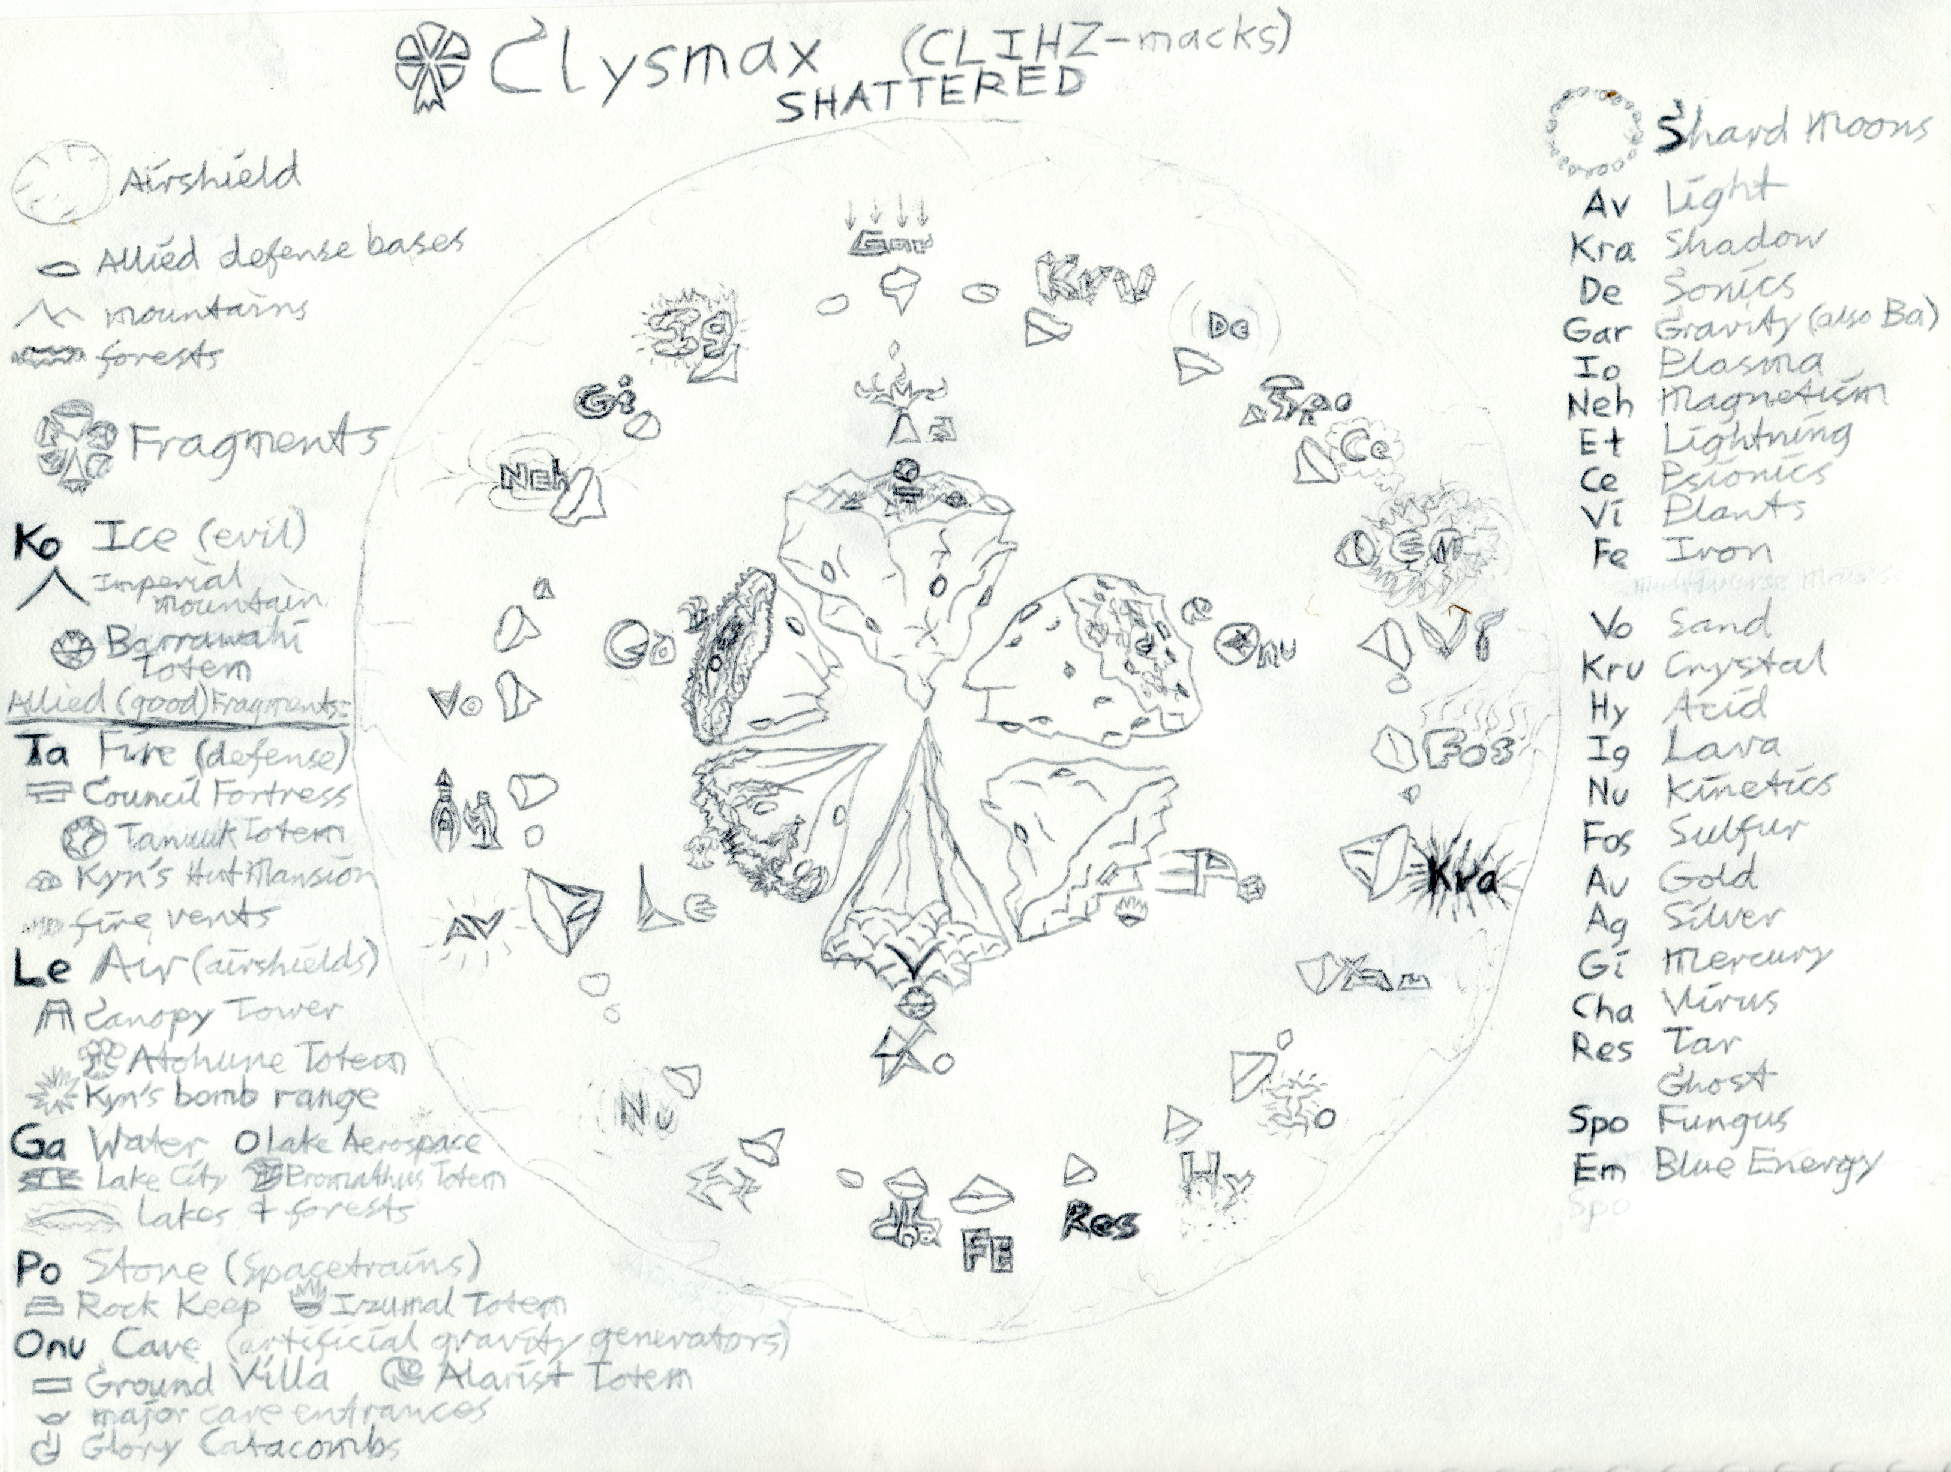 Clysmax (CLIHZ-macks)
SHATTERED
Airshield
Allied defense bases
mountains
forests
Fragments
Ko Ice (evil)
Imperial
mountain
Barrawahi
Totem
Allied (good) Fragments:
Ta Fire (defense)
Council Fortress
Tanuuk Totem
Kyn's Hut Mansion
fire vents
Le Air (airshields)
Canopy Tower
Atohune Totem
Kyn's bomb range
Ga Water O Lake Aerospace
Lake City Promathus Totem
Lakes + forests
Po Stone (spacetrains)
Rock Keep Irumal Totem
Onu Cave (artificial gravity generators)
Ground Villa Alarist Totem
major cave entrances
Glory Catacombs
Gar
Kru
De
Ig
Gi
Spo
Ce
Neh
Ta
Em
Ga
Onu
Vi
Vo
Fos
Au
Kra
Po
Av
Le
Ko
Nu
Io
Et
Hy
Cha
Fe
Res
Shard Moons
Av Light
Kra Shadow
De Sonics
Gar Gravity (also Ba)
Io Plasma
Neh Magnetism
Et Lightning
Ce Psionics
Vi Plants
Fe Iron
Vo Sand
Kru Crystal
Hy Acid
Ig Lava
Nu Kinetics
Fos Sulfur
Au Gold
Ag Silver
Gi Mercury
Cha Virus
Res Tar
Ghost
Spo Fungus
Em Blue Energy
Spo